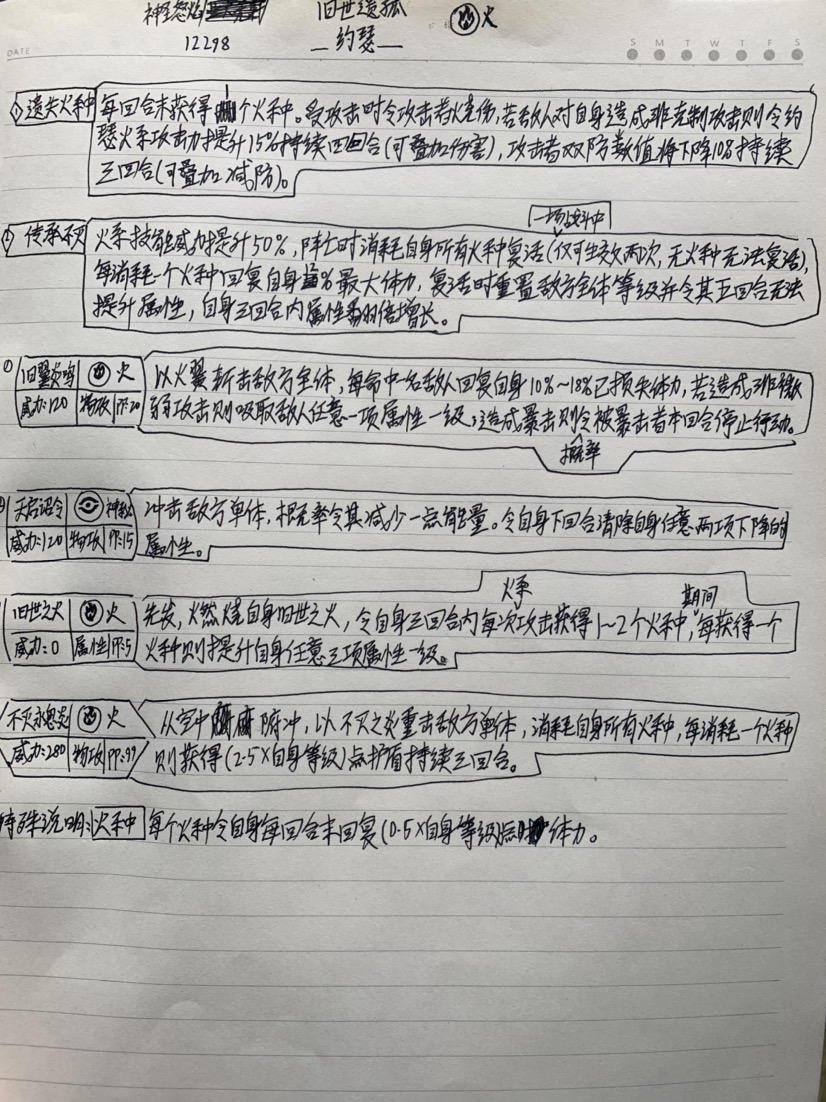 神圣怒焰 旧世遗孤 火
12298 — 约瑟 —
DATE S M T W T F S
遗失火种 每回合末获得1个火种。受攻击时令攻击者烧伤,若敌人对自身造成非克制攻击则令约
瑟火系攻击力提升15%持续四回合(可叠加伤害),攻击者双防数值将下降10%持续
三回合(可叠加减防)。
一场战斗中
传承不灭 火系技能威力提升50%,阵亡时消耗自身所有火种复活(仅可生效两次,无火种无法复活),
每消耗一个火种回复自身%最大体力,复活时重置敌方全体等级并令其五回合无法
提升属性,自身三回合内属性翻倍增长。
① 旧翼炎鸣 火 以火翼斩击敌方全体,每命中一名敌人回复自身10%~18%已损失体力,若造成非微
威力:120 物攻 PP:20 弱攻击则吸取敌人任意一项属性一级,造成暴击则令被暴击者本回合停止行动。
概率
天启诏令 神秘 冲击敌方单体,概率令其减少一点能量。令自身下回合清除自身任意两项下降的
威力:120 物攻 PP:15 属性。
火系 期间
旧世之火 火 先发,燃烧自身旧世之火,令自身三回合内每次攻击获得1~2个火种,每获得一个
威力:0 属性 PP:5 火种则提升自身任意三项属性一级。
不灭永恩炎 火 从空中俯冲,以不灭之炎重击敌方单体,消耗自身所有火种,每消耗一个火种
威力:280 物攻 PP:99 则获得(2.5×自身等级)点护盾持续三回合。
特殊说明:火种 每个火种令自身每回合末回复(0.5×自身等级)点体力。